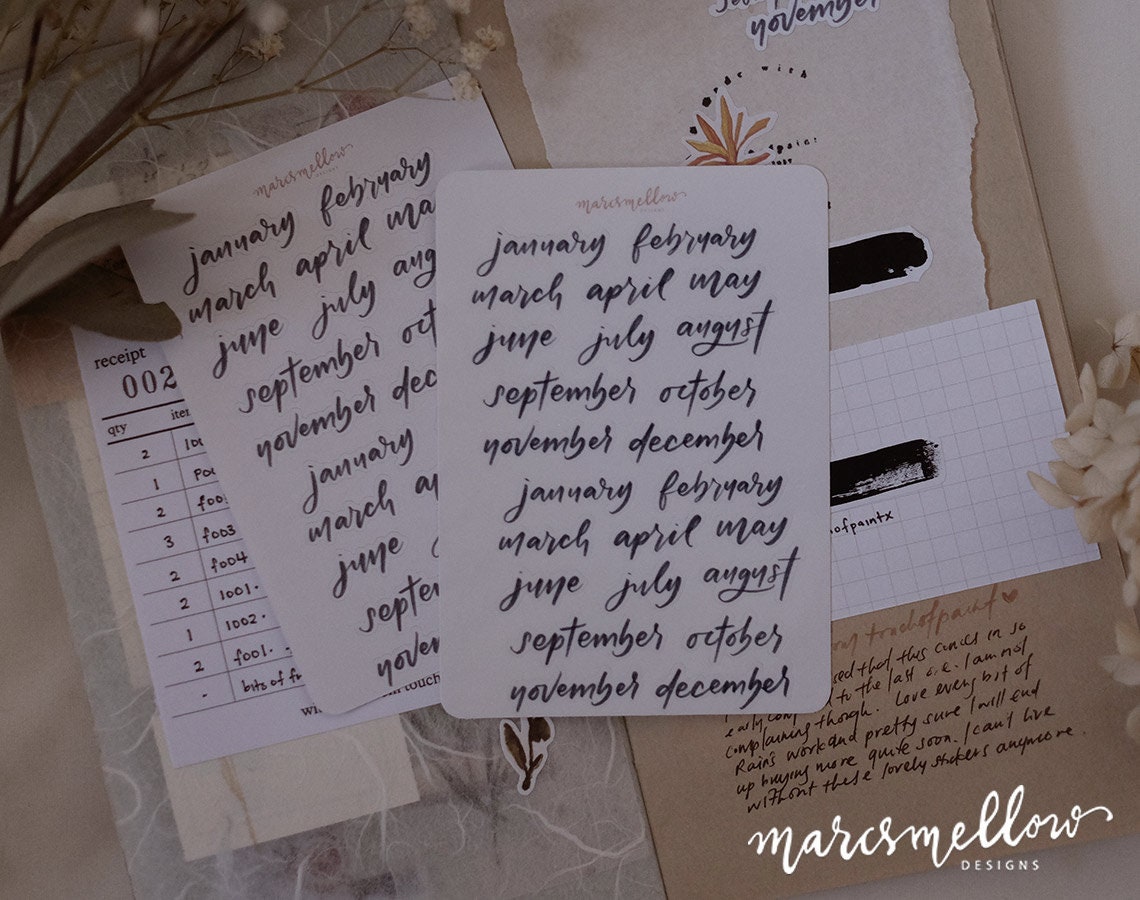 november
be with
paint
marcsmellow
january february
march april ma
june july aug
september oct
november dec
january
march ap
june
septe
novem
receipt
002
qty
2
1
2
3
2
2
1
2
-
100
f003
f004
1001.
1002.
f001.
bits of fr
touch
marcsmellow
DESIGNS
january february
march april may
june july august
september october
november december
january february
march april may
june july august
september october
november december
ofpaintx
touchofpaint
sed that this comes in so
early to the last o.e. I am not
complaining though. Love every bit of
Rain's work and pretty sure I will end
up buying more quite soon. I can't live
without these lovely stickers anymore.
marcsmellow
DESIGNS